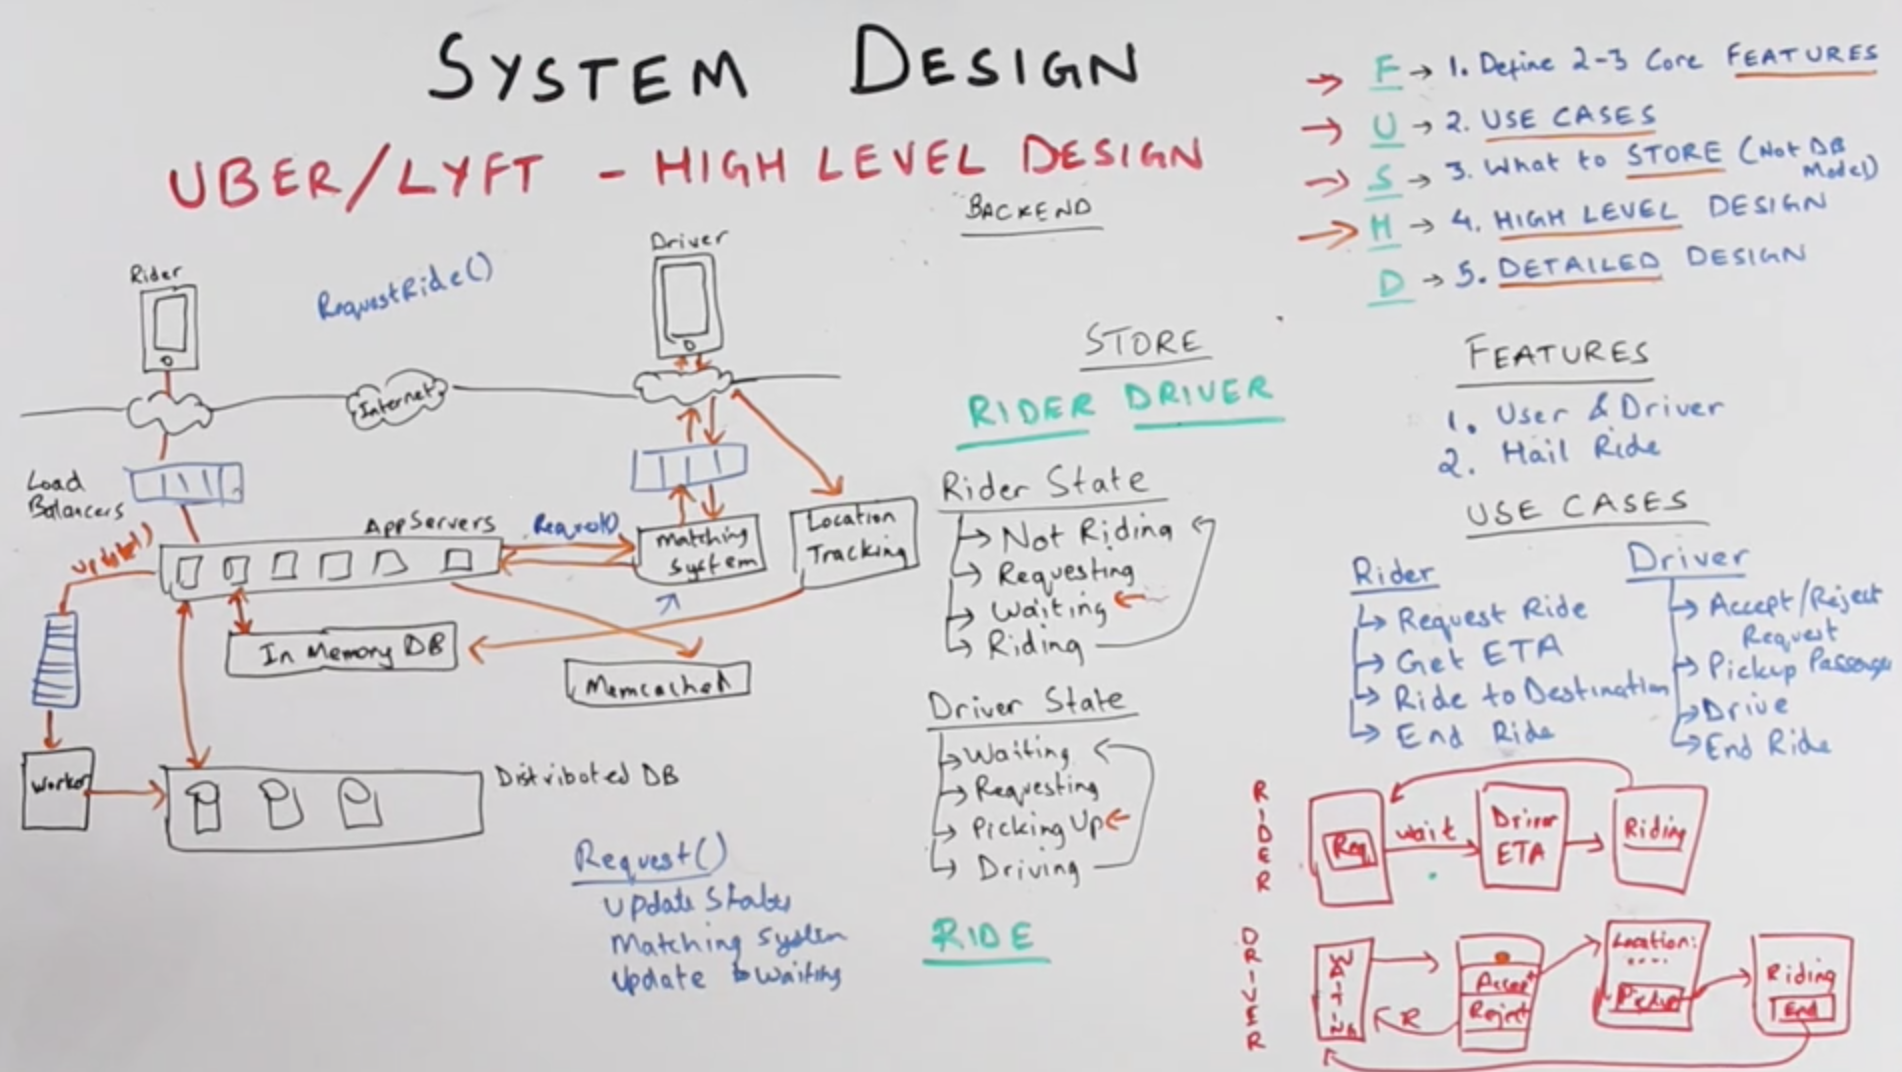 SYSTEM DESIGN
UBER/LYFT - HIGH LEVEL DESIGN
BACKEND
F → 1. Define 2-3 Core FEATURES
U → 2. USE CASES
S → 3. What to STORE (Not DB Model)
H → 4. HIGH LEVEL DESIGN
D → 5. DETAILED DESIGN
Rider
RequestRide()
Driver
Internet
Load
Balancers
Update()
AppServers
Request()
Matching
System
Location
Tracking
In Memory DB
Memcached
Worker
Distributed DB
Request()
Update States
Matching System
Update to Waiting
STORE
RIDER DRIVER
Rider State
Not Riding
Requesting
Waiting
Riding
Driver State
Waiting
Requesting
Picking Up
Driving
RIDE
FEATURES
1. User & Driver
2. Hail Ride
USE CASES
Rider
Request Ride
Get ETA
Ride to Destination
End Ride
Driver
Accept/Reject
Request
Pickup Passenger
Drive
End Ride
RIDER
Req
wait
Driver
ETA
Riding
DRIVER
WAITING
Accept
Reject
R
Location:
....
Pickup
Riding
End